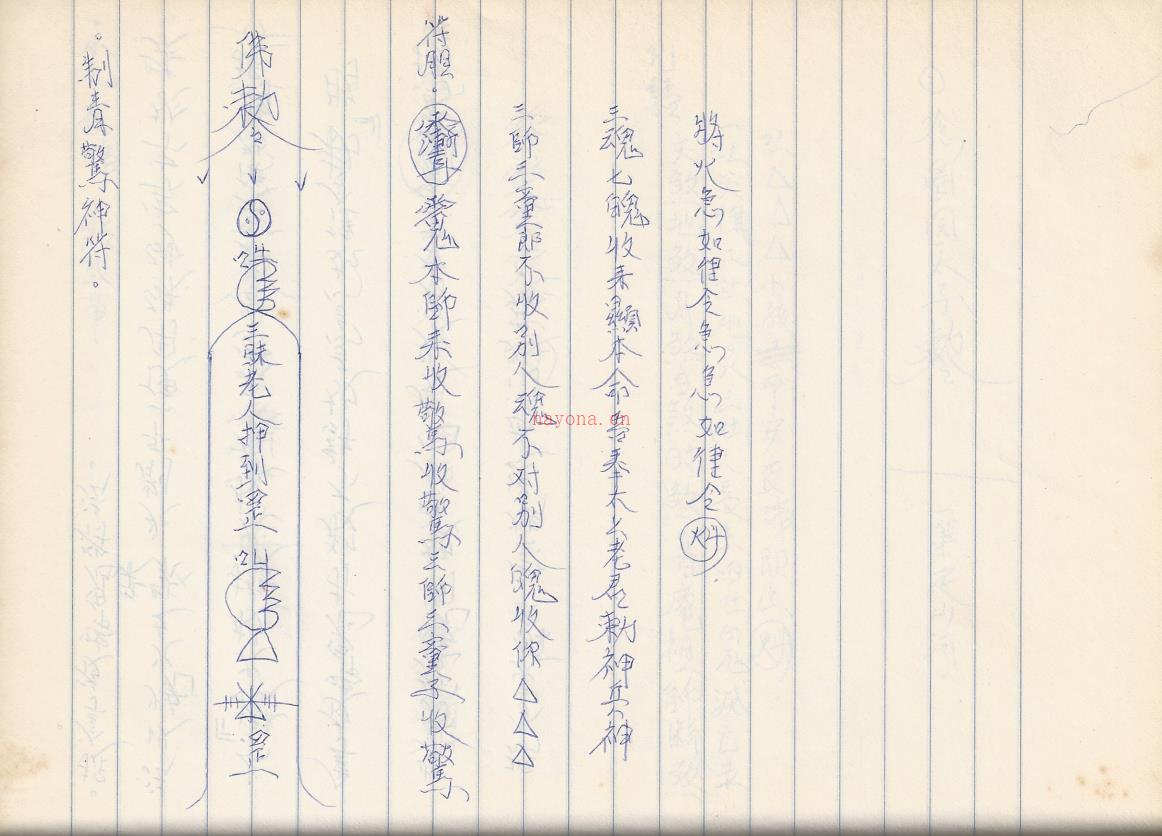 。制驚神符。
佛勅令
三昧老人押到罡
罡
符胆。本師來收驚收驚三師三童子收驚
三師三童郎不收別人魂不对別人魄收你△△△
三魂七魄收來歸本命吾奉太上老君勅神兵神
將火急如律令急急如律令
nayona.cn